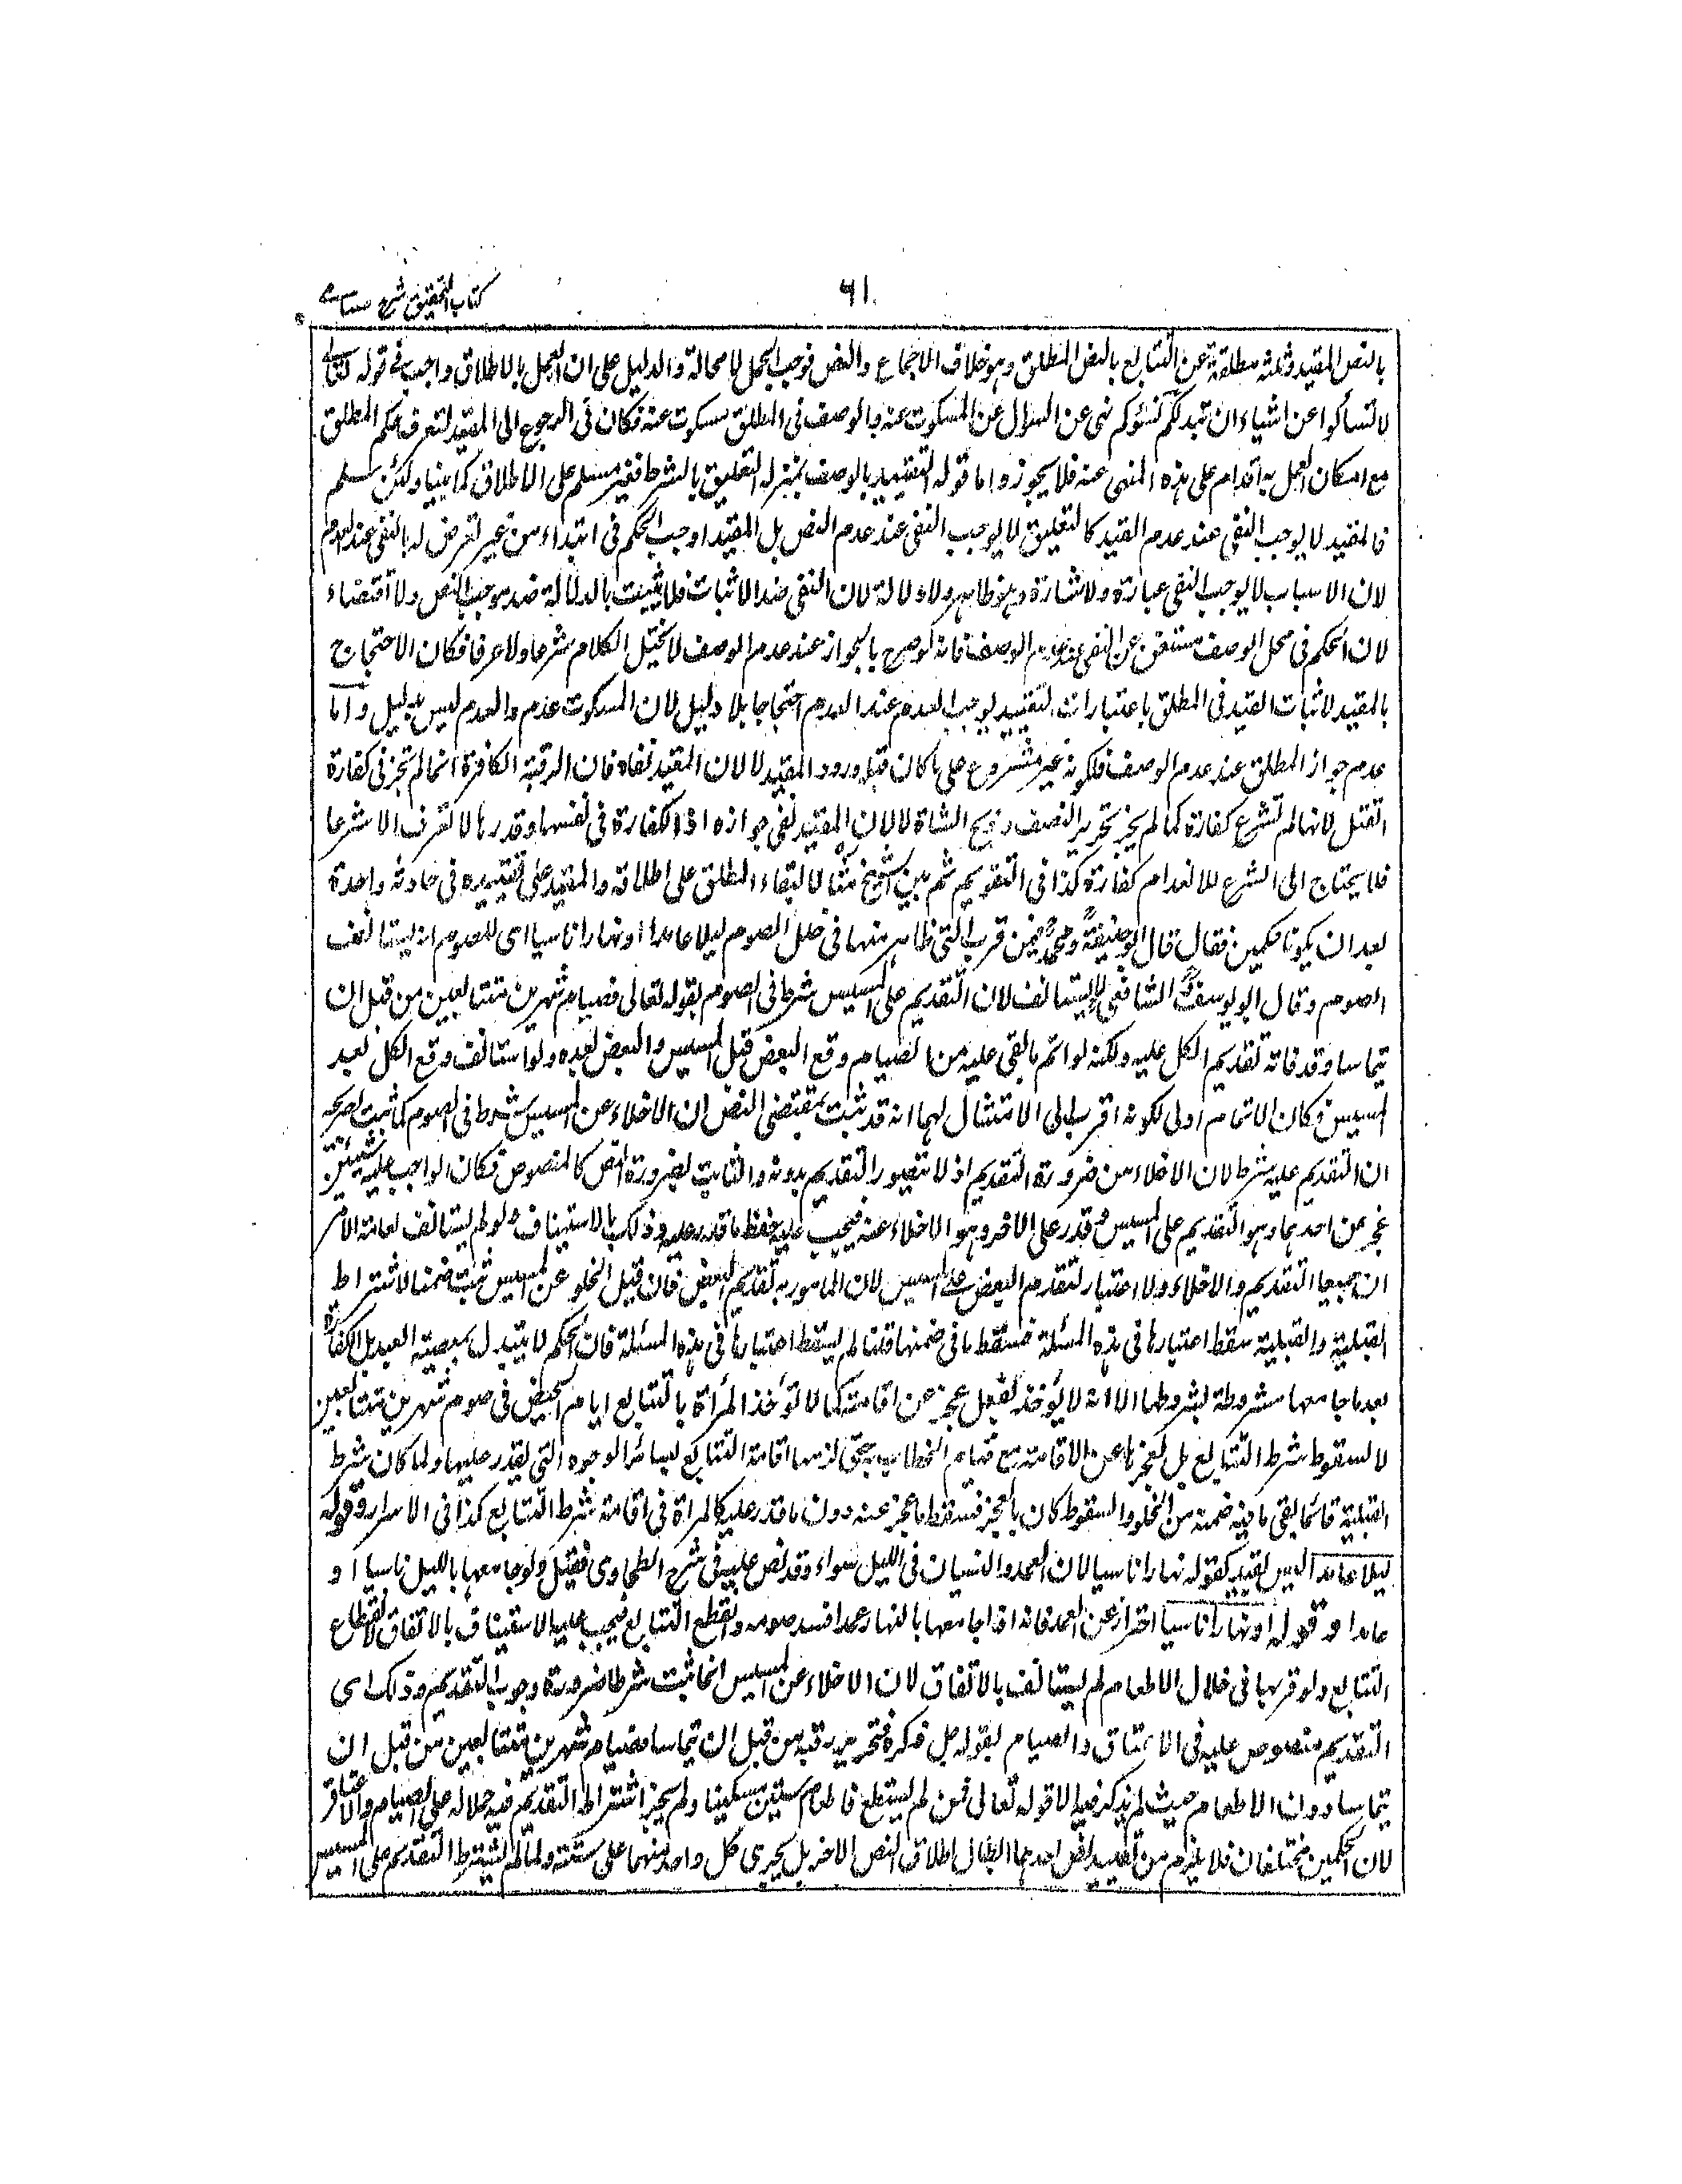 كتاب التحقيق شرح حسامى
٦١
بالنص المقيد وثلثه مطلقة عن التتابع بالنص المطلق وهو خلاف الاجماع والنص فوجب الحمل لا محالة والدليل على ان العمل بالاطلاق واجب فى قوله تعالى
لا تسألوا عن اشياء ان تبد لكم تسؤكم نهى عن السوال عن المسكوت عنه والوصف فى المطلق مسكوت عنه فكان فى الرجوع الى المقيد لتعرف حكم المطلق
مع امكان العمل به اقدام على هذه المنهى عنه فلا يجوز واما قوله التقييد بالوصف بمنزلة التعليق بالشرط فغير مسلم على الاطلاق كما بينا ولئن سلم
فالمقيد لا يوجب النفى عند عدم القيد كالتعليق لا يوجب النفى عند عدم النص بل المقيد اوجب الحكم فى ابتداء من غير تعرض له بالنفى عند العدم
لان الاسباب لا يوجب النفى عبارة ولا اشارة وهو ظاهر ولا دلالة لان النفى ضد الاثبات فلا يثبت بالدلالة ضد موجب النص ولا اقتضاء
لان الحكم فى محل الوصف مستغن عن النفى عند عدم الوصف فانه لو صرح بالجواز عند عدم الوصف لا يختل الكلام شرعا ولا عرفا فكان الاحتجاج
بالمقيد لاثبات القيد فى المطلق باعتبار ان التقييد يوجب العدم عند العدم احتجاجا بلا دليل لان السكوت عدم والعدم ليس بدليل واما
عدم جواز المطلق عند عدم الوصف فلكونه غير مشروع على ما كان قبل ورود المقيد لا لان المقيد نفاه فان الرقبة الكافرة انما لم تجز فى كفارة
القتل لانها لم تشرع كفارة كما لم يجز تحرير النصف وذبح الشاة لا لان المقيد نفى جوازه اذ الكفارة فى نفسها وقدرها لا تعرف الا شرعا
فلا يحتاج الى الشرع للانعدام كفارة كذا فى التقويم ثم بين الشيخ مثالا لبقاء المطلق على اطلاقه والمقيد على تقييده فى حادثة واحدة
بعد ان يكونا حكمين فقال قال ابو حنيفة ومحمد فيمن قرب التى ظاهر منها فى خلل الصوم ليلا عامدا او نهارا ناسيا اى للصوم انه يستانف
الصوم وقال ابو يوسف والشافعى لا يستانف لان التقديم على المسيس شرط فى الصوم بقوله تعالى فصيام شهرين متتابعين من قبل ان
يتماسا وقد فاته تقديم الكل عليه ولكنه لو اتم ما بقى عليه من الصيام وقع البعض قبل المسيس والبعض بعده ولو استانف وقع الكل بعد
المسيس فكان الاتمام اولى لكونه اقرب الى الامتثال لهما انه قد ثبت بمقتضى النص ان الاخلاء عن المسيس شرط فى الصوم كما ثبت بصريحه
ان التقديم عليه شرط لان الاخلاء من ضرورة التقديم اذ لا تصور التقديم بدونه والثابت لضرورة النص كالمنصوص فكان الواجب عليه شيئين
عجز عن احدهما وهو التقديم على المسيس وقدر على الاخر وهو الاخلاء عنه فيجب عليه حفظ ما قدر عليه وذلك بالاستيناف ولو لم يستانف لفاته الامر
ان جميعا التقديم والاخلاء ولا اعتبار لتقدم البعض على المسيس لان المامور به تقديم البعض فان قيل الخلو عن المسيس ثبت ضمنا لاشتراط
القبلية والقبلية سقط اعتبارها فى هذه المسئلة فسقط ما فى ضمنها قلنا لم يسقط اعتبارها فى هذه المسئلة فان الحكم لا يتبدل بمعصية العبد بل الكفارة
بعد ما جامعها مشروطة بشروطها الا انه لا يؤخذ بفعل عجز عن اقامته كما لا تؤخذ المرأة بالتتابع ايام الحيض فى صوم شهرين متتابعين
لا لسقوط شرط التتابع بل لعجزها عن الاقامة مع قيام الخطاب به حتى لزمها اقامة التتابع بسائر الوجوه التى يقدر عليها ولما كان شرط
القبلية قائما بقى ما فيه ضمنه من الخلو والسقوط كان بالعجز فسقط ما عجز عنه دون ما قدر عليه كالمرأة فى اقامة شرط التتابع كذا فى الاسرار وقوله
ليلا عامدا ليس بقيد كقوله نهارا ناسيا لان العمد والنسيان فى الليل سواء وقد نص عليه فى شرح الطحاوى فقيل ولو جامعها بالليل ناسيا او
عامدا وقوله او نهارا ناسيا احتراز عن العمد فانه اذا جامعها بالنهار عمدا فسد صومه وانقطع التتابع فيجب عليه الاستيناف بالاتفاق لانقطاع
التتابع ولو قربها فى خلال الاطعام لم يستانف بالاتفاق لان الاخلاء عن المسيس انما ثبت شرطا ضرورة وجوب التقديم وذلك اى
التقديم منصوص عليه فى الاعتاق والصيام بقوله جل ذكره فتحرير رقبة من قبل ان يتماسا فصيام شهرين متتابعين من قبل ان
يتماسا دون الاطعام حيث لم يذكر فيه الا قوله تعالى فمن لم يستطع فاطعام ستين مسكينا ولم يجز اشتراط التقديم فيه حملا له على الصيام والاعتاق
لان الحكمين مختلفان فلا يلزم من تقييد نص احدهما ابطال اطلاق النص الاخر بل يجرى كل واحد منهما على سننه ولما لم يشترط التقديم على المسيس